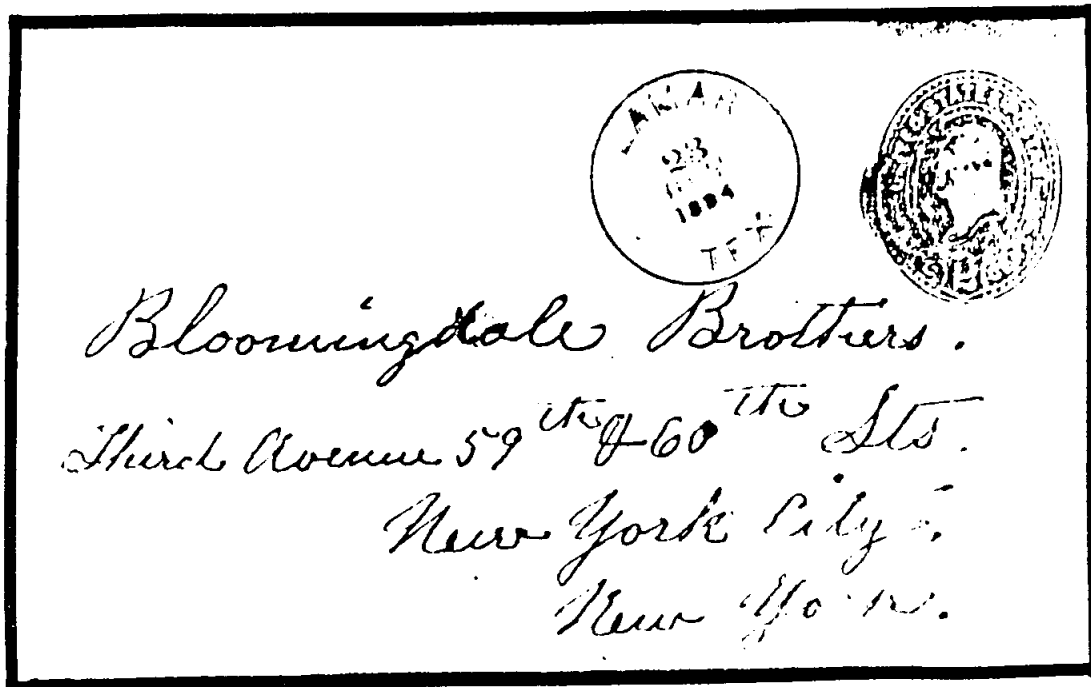 LAMAR
23
1894
TEX
Bloomingdale Brothers.
Third Avenue 59th & 60th Sts.
New York City.
New York.